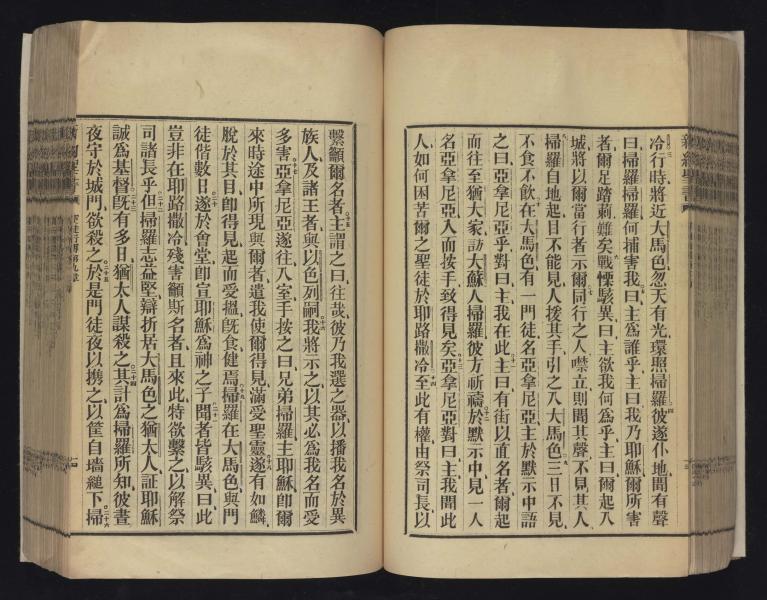 冷行時將近大馬色忽天有光環照掃羅彼遂仆地聞有聲
曰掃羅掃羅何捕害我曰主為誰乎主曰我乃耶穌爾所害
者爾足踏刺難矣戰慄駭異曰主欲我何為乎主曰爾起入
城將以爾當行者示爾同行之人噤立則聞其聲不見其人
掃羅自地起目不能見人援其手引之入大馬色三日不見
不食不飲在大馬色有一門徒名亞拿尼亞主於默示中語
之曰亞拿尼亞乎對曰主我在此主曰有街以直名者爾起
而往至猶大家訪大蘇人掃羅彼方祈禱於默示中見一人
名亞拿尼亞入而按手致得見矣亞拿尼亞對曰主我聞此
人如何困苦爾之聖徒於耶路撒冷至此有權由祭司長以
繫籲爾名者主謂之曰往哉彼乃我選之器以播我名於異
族人及諸王者與以色列嗣我將示之以其必為我名而受
多害亞拿尼亞遂往入室手按之曰兄弟掃羅主耶穌卽爾
來時途中所現與爾者遣我使爾得見滿受聖靈遂有如鱗
脫於其目卽得見起而受搵旣食健焉掃羅在大馬色與門
徒偕數日遂於會堂卽宣耶穌為神之子聞者皆駭異曰此
豈非在耶路撒冷殘害籲斯名者且來此特欲繫之以解祭
司諸長乎但掃羅志益堅辯折居大馬色之猶太人証耶穌
誠為基督旣有多日猶太人謀殺之其計為掃羅所知彼晝
夜守於城門欲殺之於是門徒夜以攜之以筐自墻縋下掃